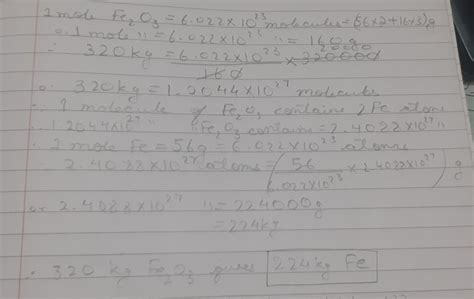 1 mole Fe₂O₃ = 6.022×10²³ molecules = (56×2+16×3)g
or 1 mole " = 6.022×10²³ " = 160g
∴ 320kg = 6.022×10²³/160 × 320000
or 320kg = 1.2044×10²⁷ molecules
∵ 1 molecule of Fe₂O₃ contains 2 Fe atoms
∴ 1.2044×10²⁷ " Fe₂O₃ contains = 2.4022×10²⁷ "
∵ 1 mole Fe = 56g = 6.022×10²³ atoms
2.4088×10²⁷ atoms = (56/6.022×10²³ × 2.4022×10²⁷) g
or 2.4088×10²⁷ " = 224000g
= 224kg
∴ 320 kg Fe₂O₃ gives 224kg Fe